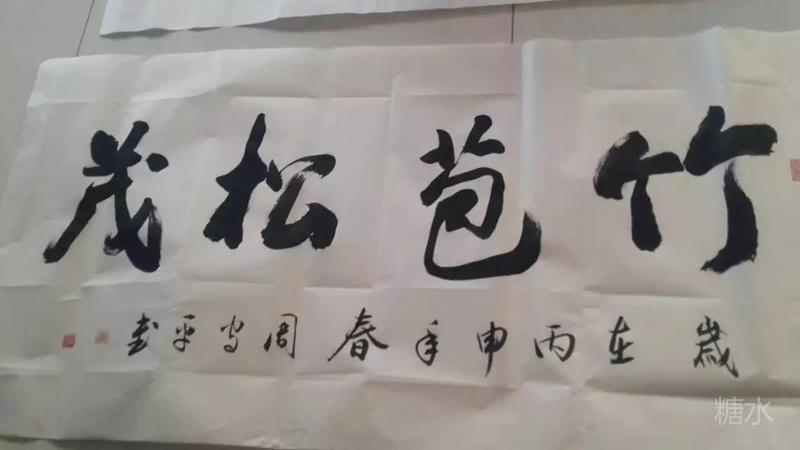 竹苞松茂
歲在丙申年春周安平書
糖水